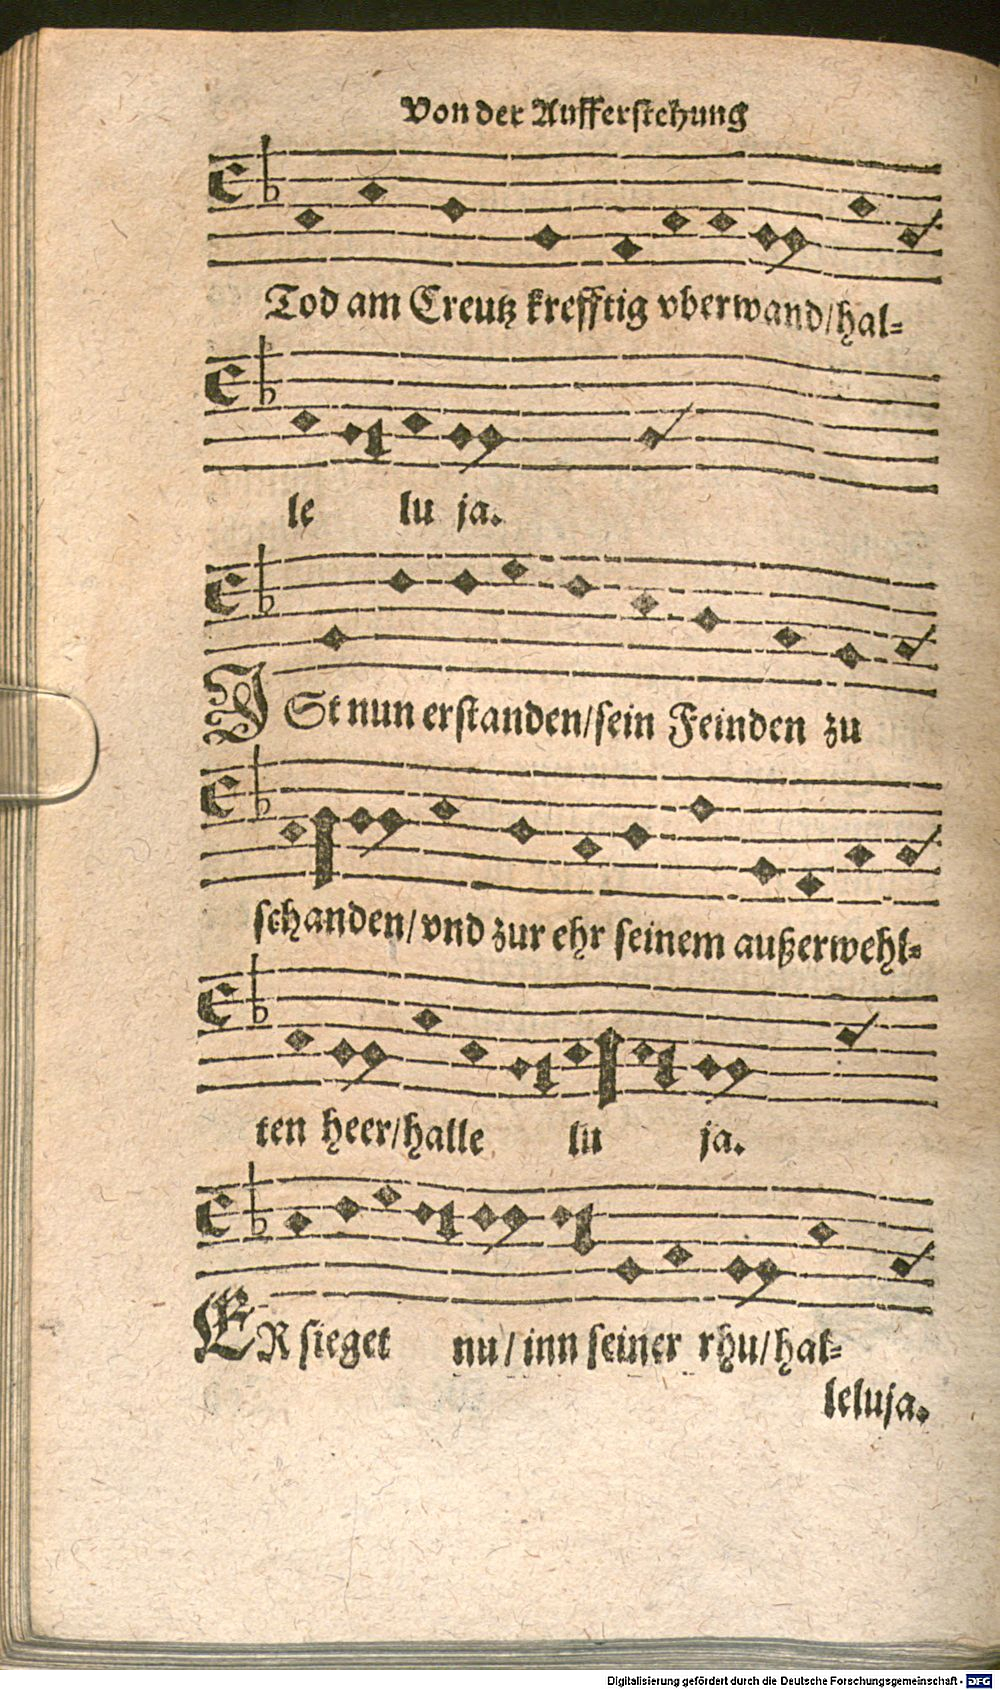 Von der Aufferstehung
Tod am Creutz krefftig vberwand/hal=
le lu ja.
ISt nun erstanden/sein Feinden zu
schanden/vnd zur ehr seinem außerwehl=
ten heer/halle lu ja.
ER sieget nu/inn seiner rhu/hal=
leluja.
Digitalisierung gefördert durch die Deutsche Forschungsgemeinschaft - DFG